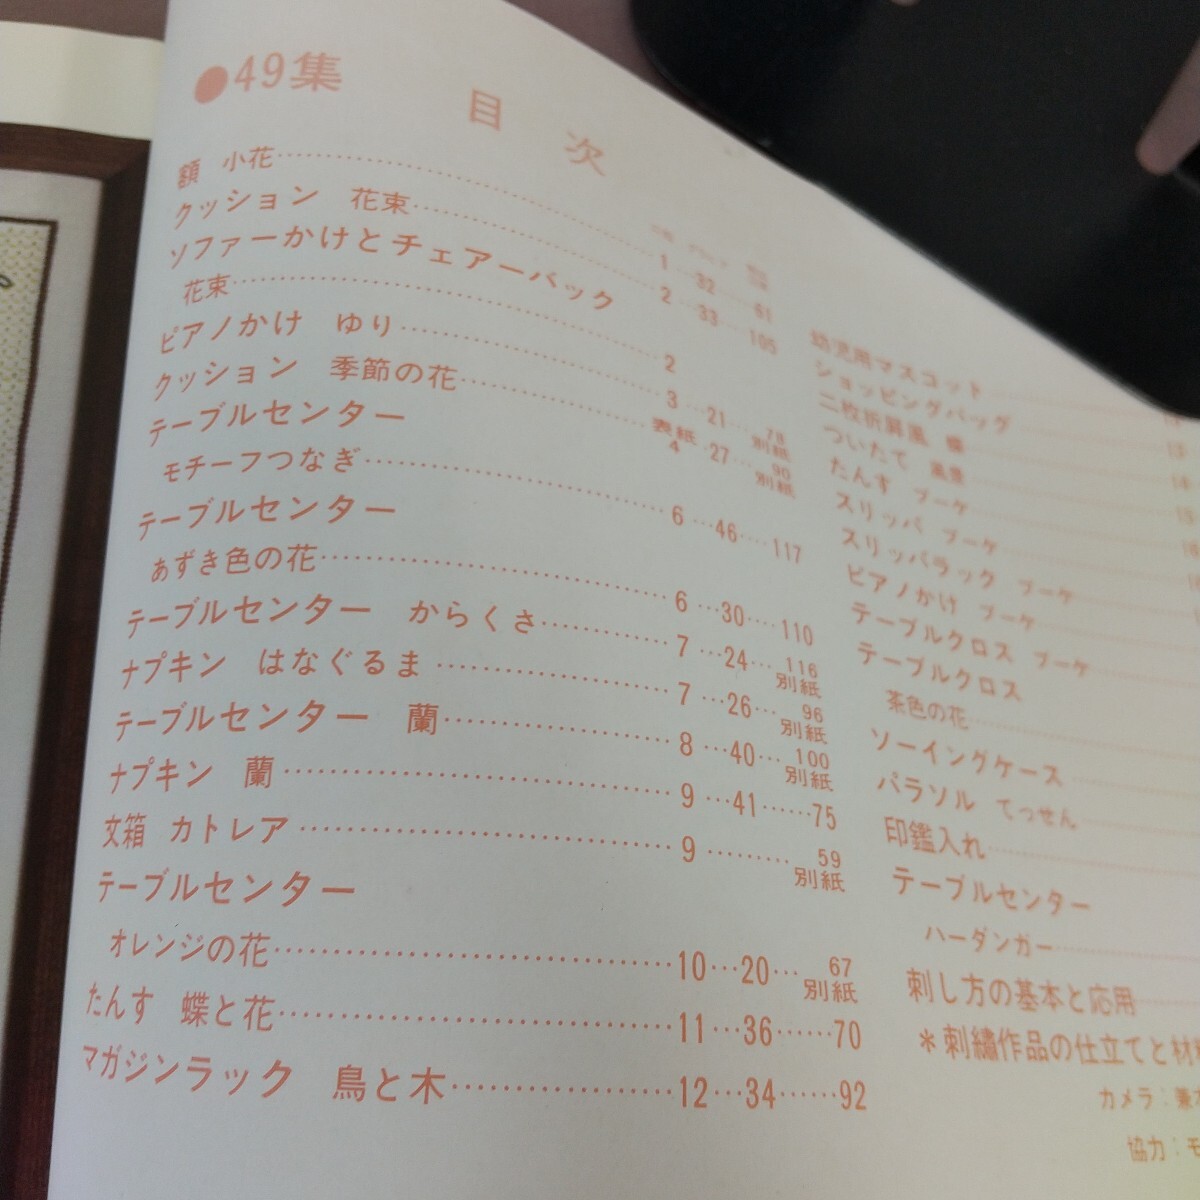 ●49集
目次
額 小花……1…32…61
クッション 花束……2…33…105
ソファーかけとチェアーバック
花束……2
ピアノかけ ゆり……3…21…78別紙
クッション 季節の花……表紙4…27…90別紙
テーブルセンター
モチーフつなぎ……6…46…117
テーブルセンター
あずき色の花……6…30…110
テーブルセンター からくさ……7…24…116別紙
ナプキン はなぐるま……7…26…96別紙
テーブルセンター 蘭……8…40…100別紙
ナプキン 蘭……9…41……75
文箱 カトレア……9………59別紙
テーブルセンター
オレンジの花……10…20…67別紙
たんす 蝶と花……11…36……70
マガジンラック 鳥と木……12…34……92
幼児用マスコット
ショッピングバッグ
二枚折屏風 蝶
ついたて 風景
たんす ブーケ
スリッパ ブーケ
スリッパラック ブーケ
ピアノかけ ブーケ
テーブルクロス ブーケ
テーブルクロス
茶色の花
ソーイングケース
パラソル てっせん
印鑑入れ
テーブルセンター
ハーダンガー
刺し方の基本と応用
＊刺繡作品の仕立てと材
カメラ：兼
協力：モ